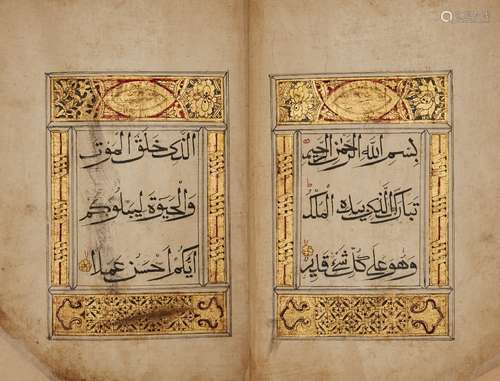 بسم الله الرحمن الرحيم
تبارك الذي بيده الملك
وهو على كل شيء قدير
الذي خلق الموت
والحيوة ليبلوكم
أيكم أحسن عملا